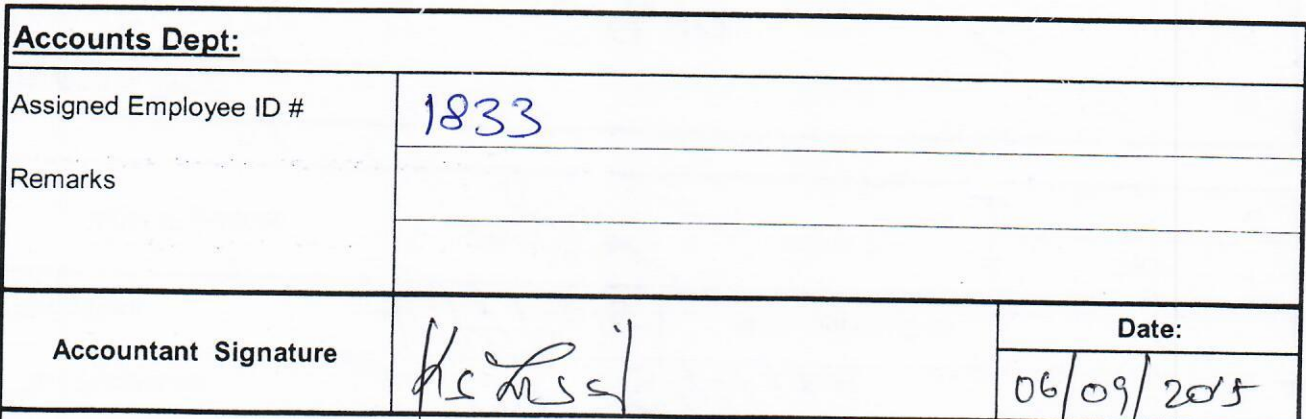 Accounts Dept:
Assigned Employee ID # 1833
Remarks
Accountant Signature
Date:
06/09/2015